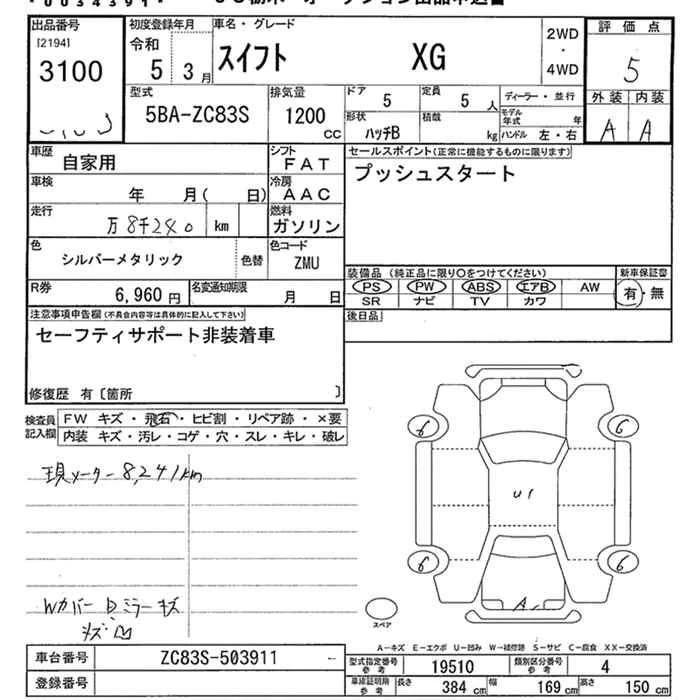 出品番号 初度登録年月 車名・グレード 評価点
[2194] 令和 スイフト XG 2WD・4WD 5
3100 5 3月
型式 排気量 ドア 5 定員 5人 ディーラー・並行 外装 内装
5BA-ZC83S 1200cc 形状 ハッチB 積載 kg モデル年式 年 A A
ハンドル 左・右
車歴 自家用 シフト FAT セールスポイント(正常に機能するものに限ります)
車検 年 月( 日) 冷房 AAC プッシュスタート
走行 万8千240 km 燃料 ガソリン
色 シルバーメタリック 色替 色コード ZMU
装備品(純正品に限り○をつけてください) 新車保証書
R券 6,960円 名変通知期限 月 日 PS PW ABS エアB AW 有・無
SR ナビ TV カワ
注意事項申告欄(不具合内容等は具体的に記入して下さい) 後日品
セーフティサポート非装着車
修復歴 有〔箇所 〕
検査員記入欄 FW キズ・飛石・ヒビ割・リペア跡・×要
内装 キズ・汚レ・コゲ・穴・スレ・キレ・破レ
6 6
現メーター8,241km
U1
6 6
Wカバー Dミラーキズ
A
キズ
スペア
A-キズ E-エクボ U-凹み W-補修跡 S-サビ C-腐食 XX-交換済
車台番号 ZC83S-503911 型式指定番号参考 19510 類別区分番号参考 4
登録番号 車庫証明用参考 長さ 384cm 幅 169cm 高さ 150cm